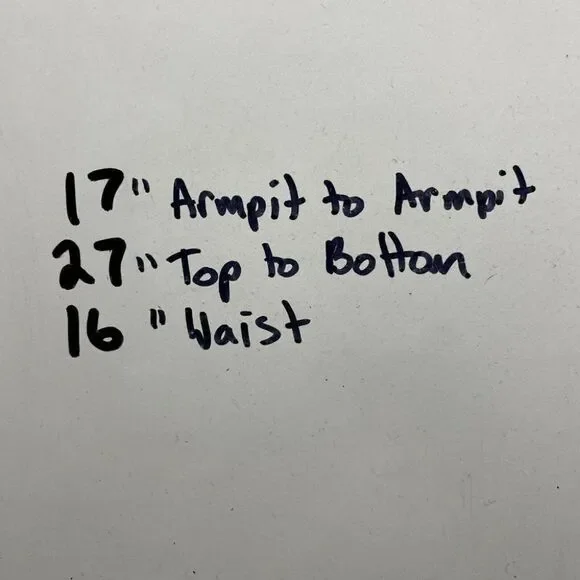 17" Armpit to Armpit
27" Top to Bottom
16" Waist